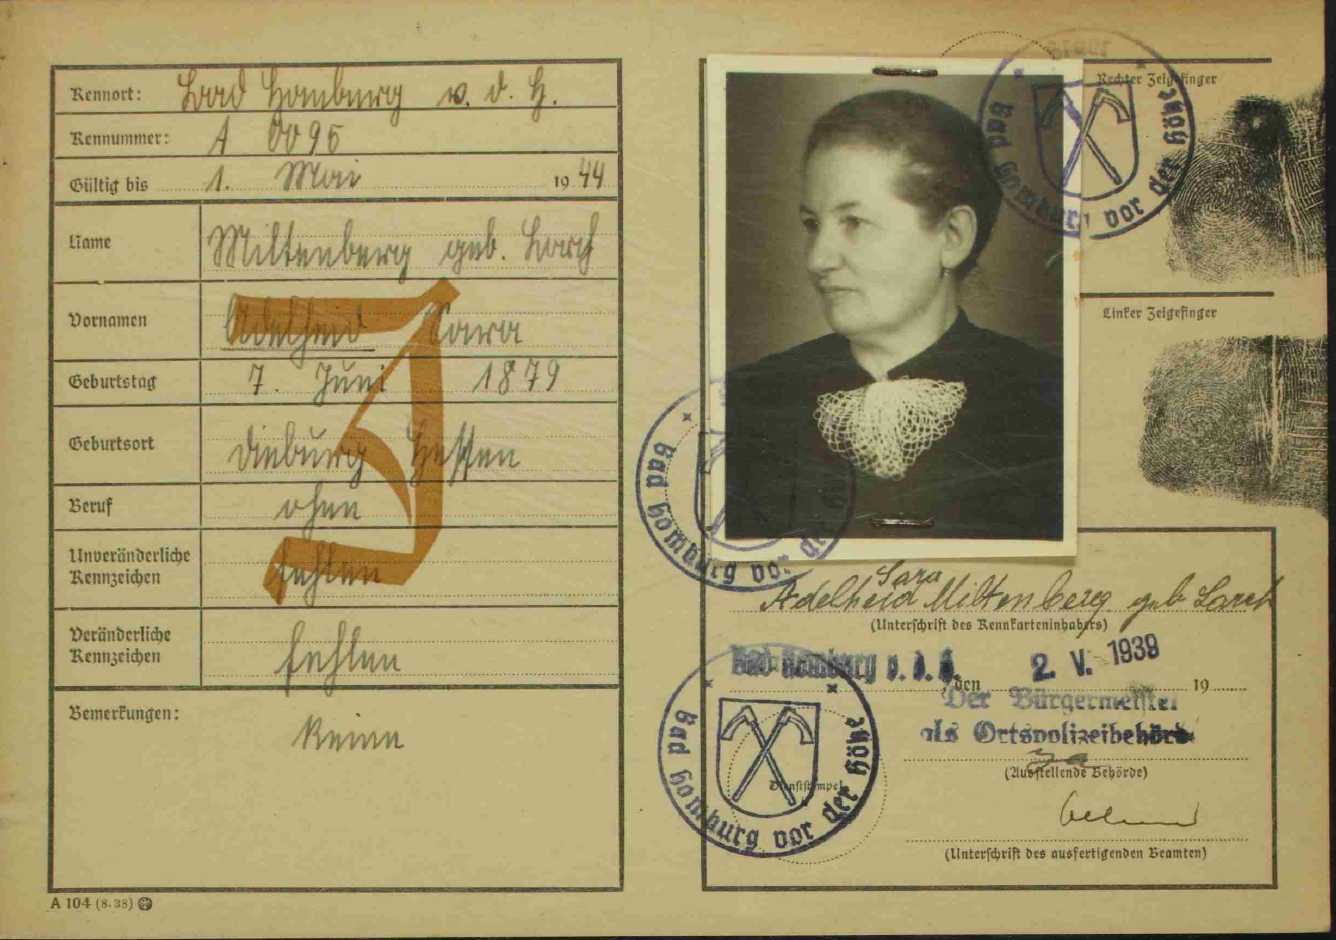 Kennort: Bad Homburg v. d. H.
Kennummer: A 0096
Gültig bis 1. Mai 1944
Name Miltenberg geb. Lorch
Vornamen Adelheid Sara
Geburtstag 7. Juni 1879
Geburtsort Dieburg Hessen
Beruf ohne
Unveränderliche
Kennzeichen fehlen
Veränderliche
Kennzeichen fehlen
Bemerkungen:
Keine
J
A 104 (8. 38)
Rechter Zeigefinger
Linker Zeigefinger
Bad Homburg vor der Höhe
Bad Homburg vor der Höhe
Sara
Adelheid Miltenberg geb Lorch
(Unterschrift des Kennkarteninhabers)
Bad Homburg v. d. H. den 2. V. 1939 19
Der Bürgermeister
als Ortspolizeibehörde
(Ausstellende Behörde)
Bad Homburg vor der Höhe
Dienststempel
(Unterschrift des ausfertigenden Beamten)